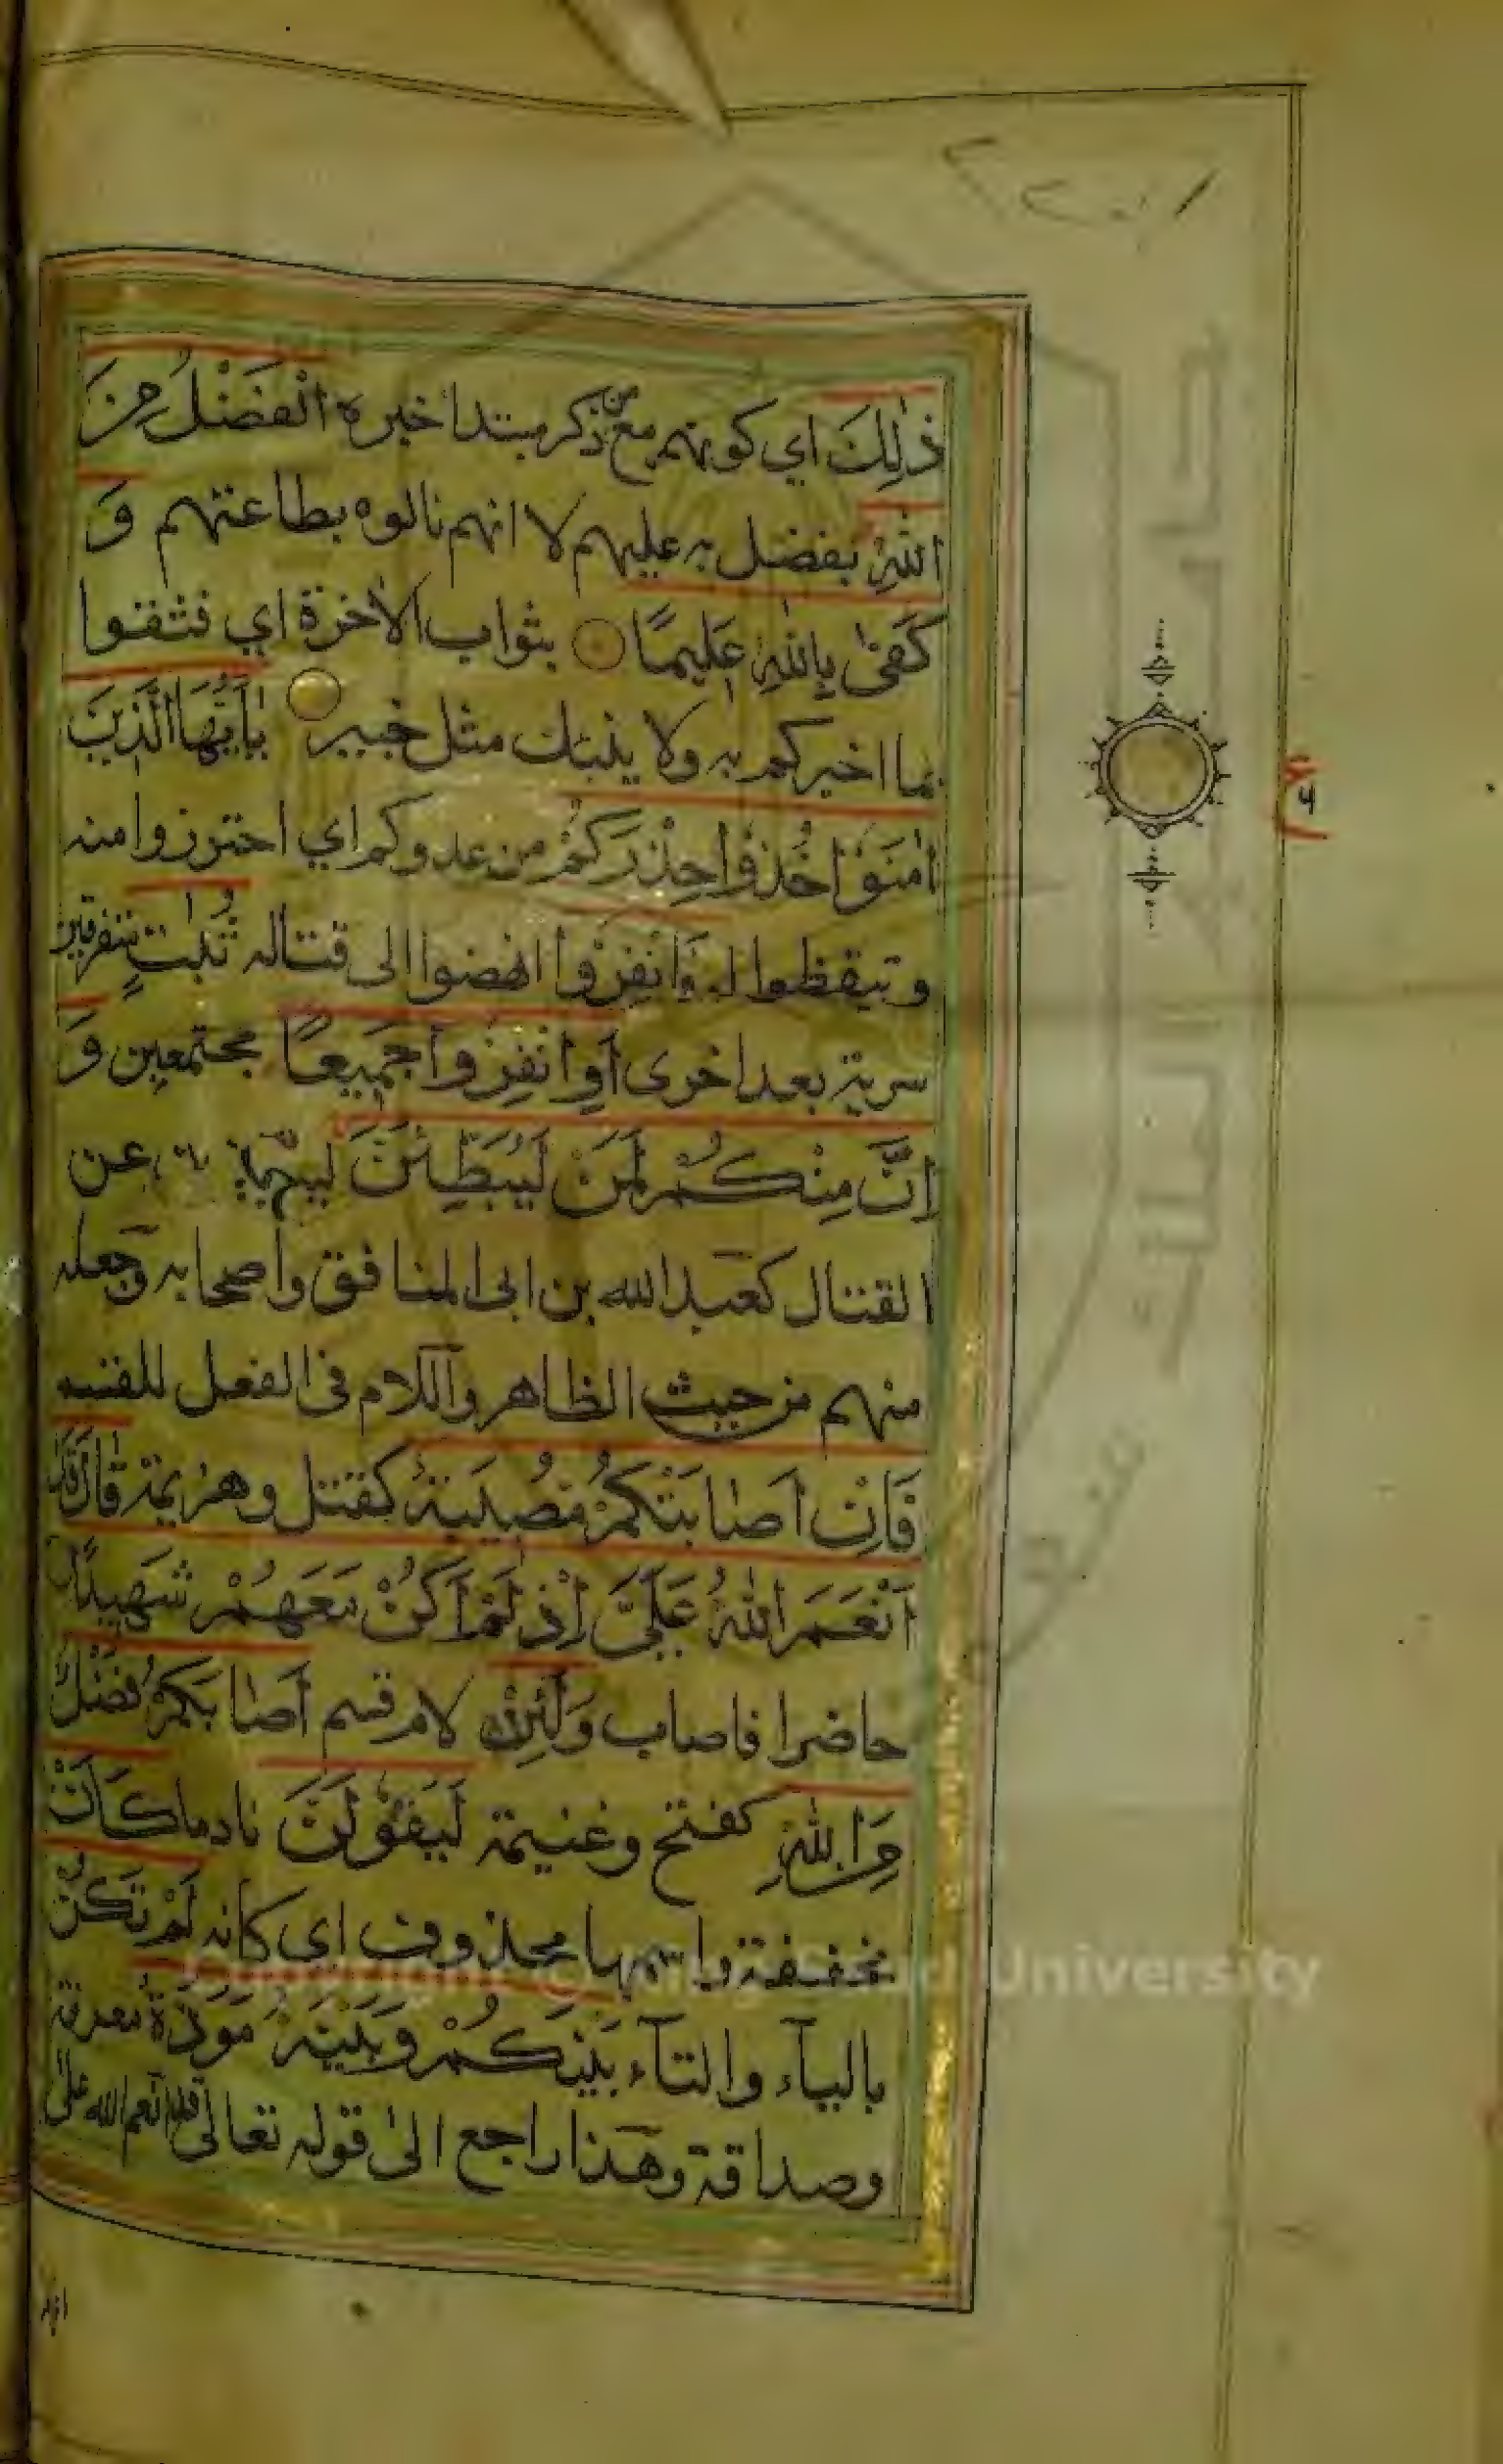 ذٰلِكَ اي كونهم مع من ذكر مبتدأ خبره الْفَضْلُ مِنَ
اللهِ تفضل به عليهم لا انهم نالوه بطاعتهم وَ
كَفىٰ بِاللهِ عَلِيمًا بثواب الاخرة اي فثقوا
بما اخبركم به ولا ينبئك مثل خبير يٰاَيُّهَا الَّذِينَ
اٰمَنُوْا خُذُوْا حِذْرَكُمْ من عدوكم اي احترزوا منه
وتيقظوا له فَانْفِرُوْا انهضوا الى قتاله ثُبَاتٍ متفرقين
سرية بعد اخرى اَوِ انْفِرُوا جَمِيعًا مجتمعين وَ
اِنَّ مِنْكُمْ لَمَنْ لَيُبَطِّئَنَّ عن
القتال كعبد الله بن ابى المنافق واصحابه وجعله
منهم من حيث الظاهر واللام فى الفعل للقسم
فَاِنْ اَصَابَتْكُمْ مُصِيبَةٌ كقتل وهزيمة قَالَ قَدْ
اَنْعَمَ اللهُ عَلَيَّ اِذْ لَمْ اَكُنْ مَعَهُمْ شَهِيدًا
حاضرا فاصاب وَلَئِنْ لام قسم اَصَابَكُمْ فَضْلٌ
مِنَ اللهِ كفتح وغنيمة لَيَقُولَنَّ نادما كَاَنْ
مخففة واسمها محذوف اي كانه لَمْ تَكُنْ
بالياء والتاء بَيْنَكُمْ وَبَيْنَهُ مَوَدَّةٌ معرفة
وصداقة وهذا راجع الى قوله تعالى قد انعم الله على
University